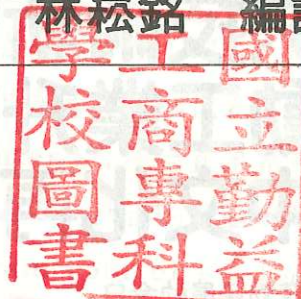 林崧銘 編
國立勤益
工商專科
學校圖書